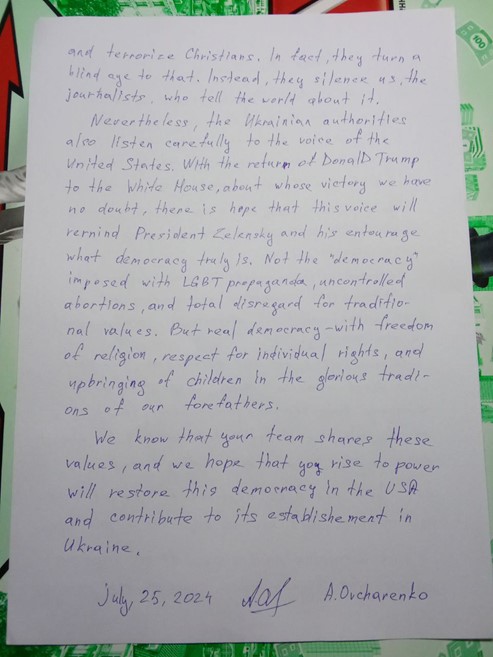 and terrorize Christians. In fact, they turn a
blind aye to that. Instead, they silence us, the
journalists, who tell the world about it.
Nevertheless, the Ukrainian authorities
also listen carefully to the voice of the
United States. With the return of Donald Trump
to the White House, about whose victory we have
no doubt, there is hope that this voice will
remind President Zelensky and his entourage
what democracy truly is. Not the "democracy"
imposed with LGBT propaganda, uncontrolled
abortions, and total disregard for traditio-
nal values. But real democracy – with freedom
of religion, respect for individual rights, and
upbringing of children in the glorious tradi-
ons of our forefathers.
We know that your team shares these
values, and we hope that you rise to power
will restore this democracy in the USA
and contribute to its establishement in
Ukraine.
july, 25, 2024 A. Ovcharenko
100